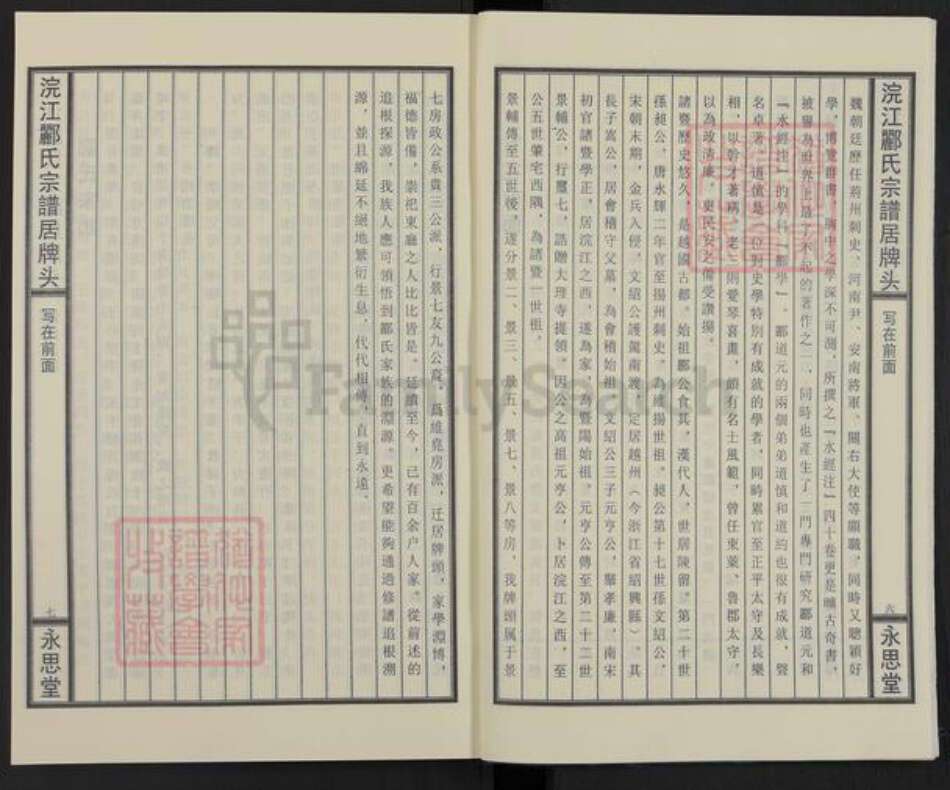 浣江酈氏宗譜居牌头
写在前面
六
永思堂
魏朝廷歷任荊州刺史、河南尹、安南將軍、關右大使等顯職。同時又聰穎好
學，博覽群書，胸中之學深不可測，所撰之『水經注』四十卷更是曠古奇書，
被譽為世界上最了不起的著作之一，同時也產生了一門專門研究酈道元和
『水經注』的學科『酈學』。酈道元的兩個弟弟道慎和道約也很有成就，聲
名卓著。道慎是一位對史學特別有成就的學者，同時累官至正平太守及長樂
相，以幹才著稱。老三則愛琴喜畫，頗有名士風範，曾任東萊、魯郡太守，
以為政清廉，吏民安之備受讚揚。
諸暨歷史悠久，是越國古都。始祖酈公食其，漢代人，世居陳留。第二十世
孫昶公，唐永輝二年官至揚州刺史，為維揚世祖。昶公第十七世孫文紹公，
宋朝末期，金兵入侵，文紹公護駕南渡，定居越州（今浙江省紹興縣）。其
長子嵩公，居會稽守父墓，為會稽始祖。文紹公三子元亨公，舉孝廉，南宋
初官諸暨學正，居浣江之西，遂為家，為暨陽始祖。元亨公傳至第二十二世
景輔公，行璽七，誥贈大理寺提領。因公之高祖元亨公，卜居浣江之西，至
公五世肇宅西隅，為諸暨一世祖。
景輔傳至五世後，遂分景二、景三、景五、景七、景八等房，我牌頭属于景
七房政公系貴三公派，行景七友九公裔，爲維堯房派，迁居牌頭，家學淵博，
福德皆備，崇祀東廳之人比比皆是。延續至今，已有百余户人家。從前述的
追根探源，我族人應可領悟到酈氏家族的淵源。更希望能夠通過修譜追根溯
源，並且綿延不絕地繁衍生息，代代相傳，直到永遠。
浣江酈氏宗譜居牌头
写在前面
七
永思堂
FamilySearch